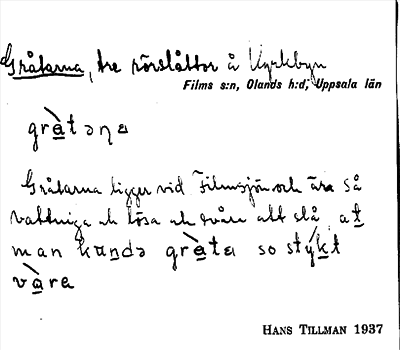 Gråtarna, tre rörslåttor å Kyrkbyn
Films s:n, Olands h:d, Uppsala län
gràtəṇa
Gråtarna ligger vid Filmsjön och äro så
vattniga och lösa och svåra att slå, at
man kunde gràta so stýkt
vàra
HANS TILLMAN 1937